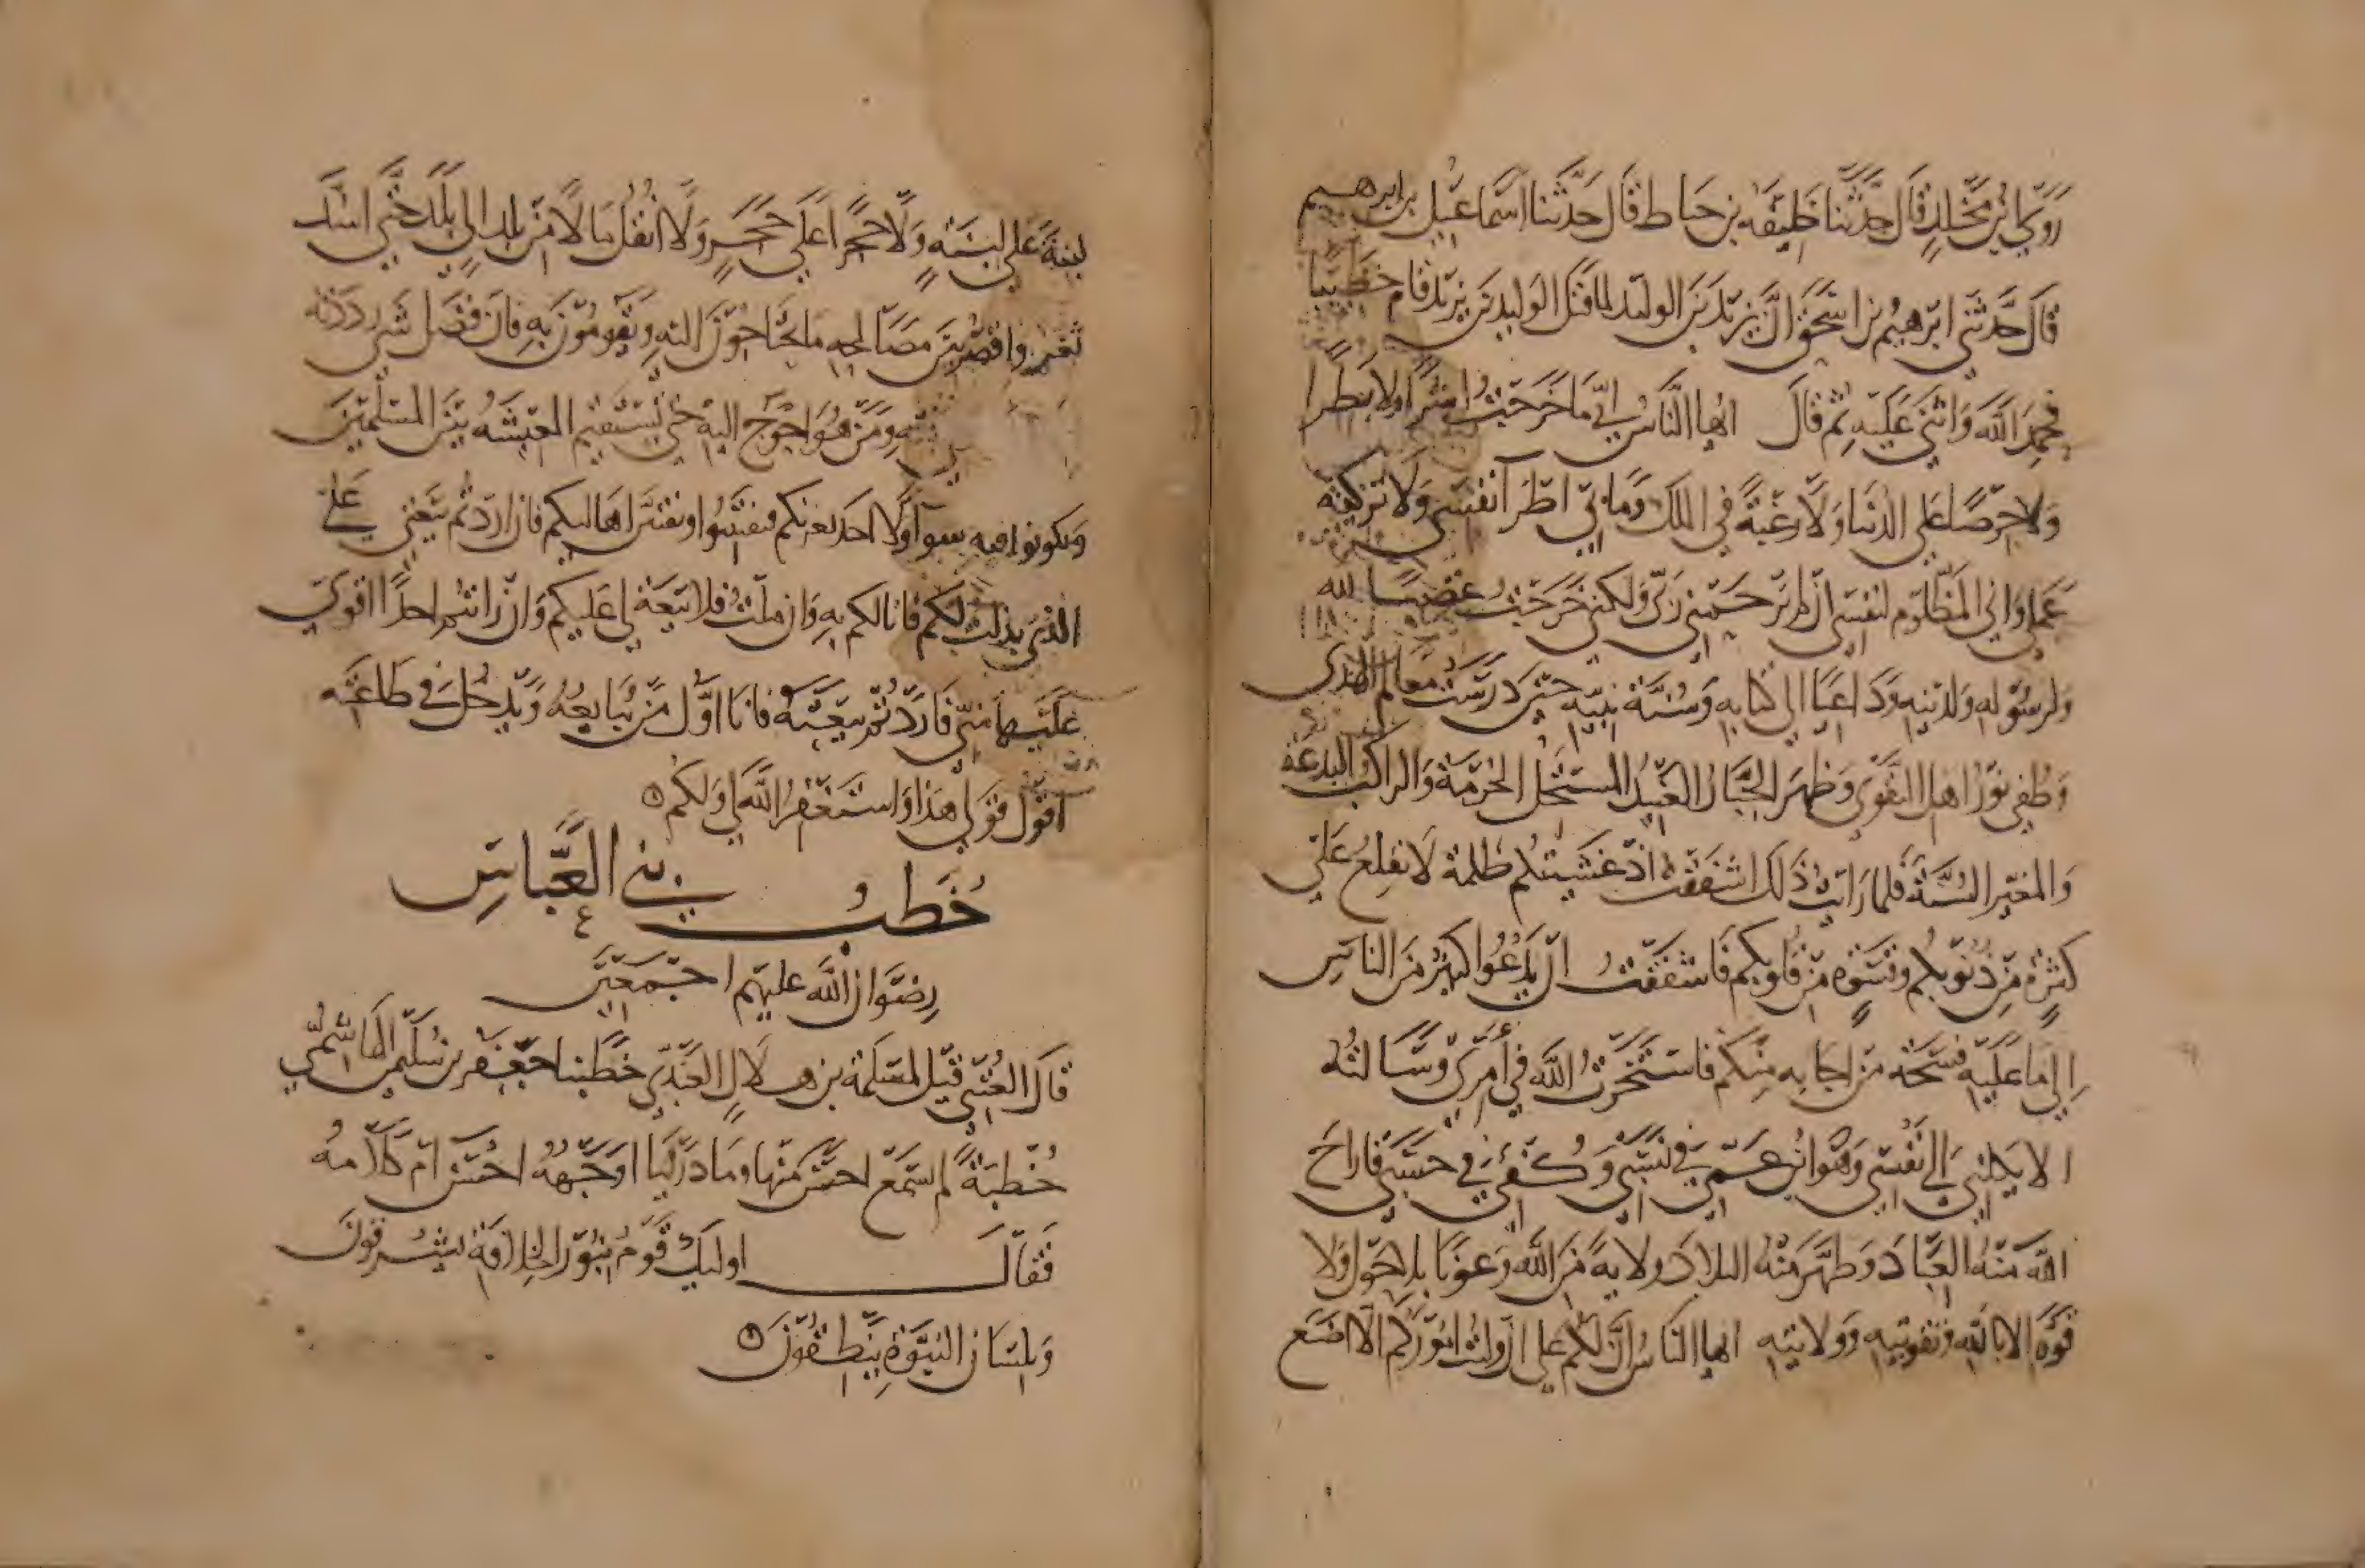 روى ابن مخلد قال حدثنا خليفة بن خياط قال حدثنا اسماعيل بن ابرهيم
قال حدثني ابرهيم بن اسحق ان يزيد بن الوليد لما قتل الوليد بن يزيد قام خطيبا
فحمد الله واثنى عليه ثم قال ايها الناس اني ما خرجت اشرا ولا بطرا
ولا حرصا على الدنيا ولا رغبة في الملك وما بي اطرآ نفسي ولا تزكية
عملي واني لمظلوم لنفسي ان لم يرحمني ربي ولكني خرجت غضبا لله
ولرسوله ولدينه وداعيا الى كتابه وسنة نبيه حين درست معالم الهدى
وطفي نور اهل التقوى وظهر الجبار العنيد المستحل الحرمة والراكب البدعة
والمغير السنة فلما رايت ذلك اشفقت اذ غشيتكم ظلمة لا تقلع على
كثرة من ذنوبكم وقسوة من قلوبكم فاشفقت ان يدعوا كثير من الناس
الى ما عليه فيتجه من اجابه منكم فاستخرت الله في امري وسالته
الا يكلني الى نفسي وهو ابن عمي في نسبي وكفئي في حسبي فاراح
الله منه العباد وطهر منه البلاد ولاية من الله وعونا بلا حول ولا
قوة الا بالله وتقويته وولايته ايها الناس ان لكم علي ان وليت اموركم الا اضع
لبنة على لبنة ولا حجرا على حجر ولا انقل مالا من بلد الى بلد حتى اسد
ثغره واقسم بين مصالحه ما يحتاجون اليه ويقومون به فان فضل شي رددته
ومن هو احوج اليه حتى تستقيم المعيشه بين المسلمين
وتكونوا فيه سوآ ولا احد بعوثكم فتفتنوا او تفتن اهاليكم فان اردتم بيعتي على
الذي بذلت لكم فانا لكم به وان ملت فلا بيعة لي عليكم وان رايتم احدا اقوى
عليها مني فاردتم بيعته فانا اول من يبايعه ويدخل في طاعته
اقول قولي هذا واستغفر الله لي ولكم
خطب بني العباس
رضوان الله عليهم اجمعين
قال العتبي قيل لمسلمة بن هلال العبدي خطبنا جعفر بن سليمن الهاشمي
خطبة لم يسمع احسن منها وما درينا اوجهه احسن ام كلامه
فقال اوليك قوم بنور الخلافة يشرقون
وبلسان النبوة ينطقون